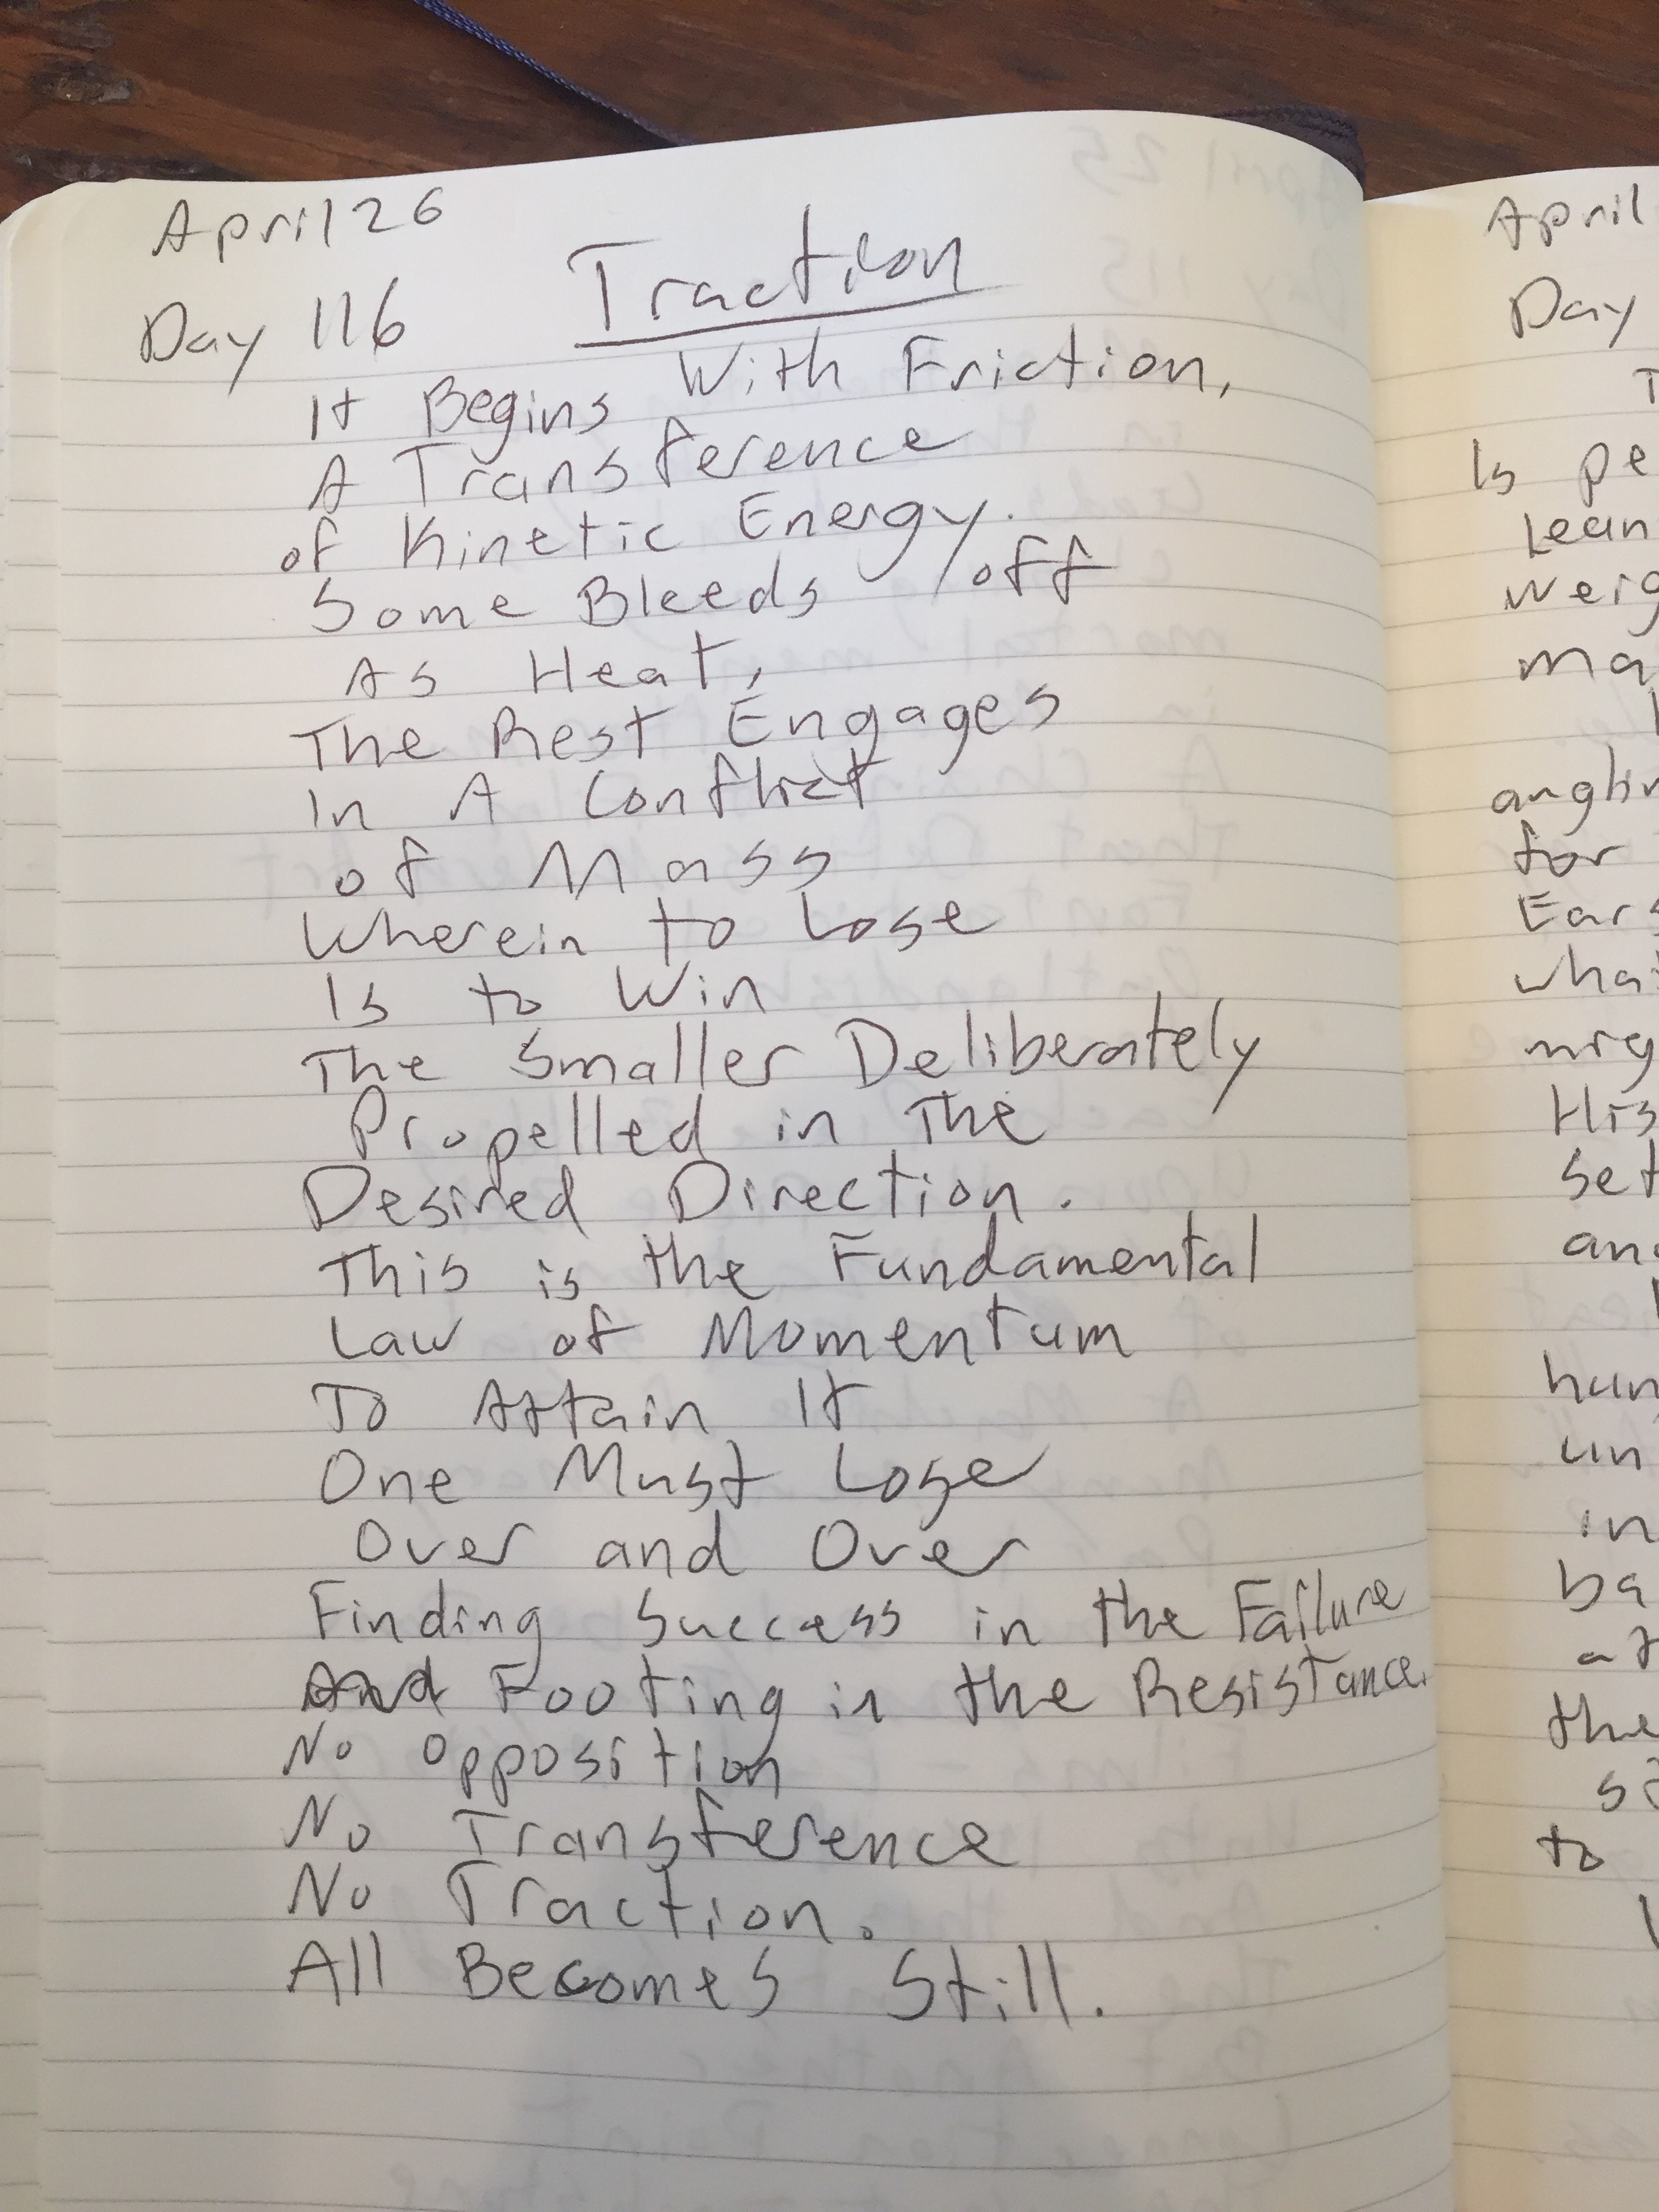 April 26
Day 116 Traction
It Begins With Friction,
A Transference
of Kinetic Energy.
Some Bleeds off
As Heat,
The Rest Engages
In A Conflict
of Mass
Wherein to Lose
Is to Win
The Smaller Deliberately
Propelled in The
Desired Direction.
This is the Fundamental
Law of Momentum
To Attain It
One Must Lose
Over and Over
Finding Success in the Failure
And Footing in the Resistance.
No Opposition
No Transference
No Traction.
All Becomes Still.
April
Day
Is
Lean
for
hun
un
in
the
to